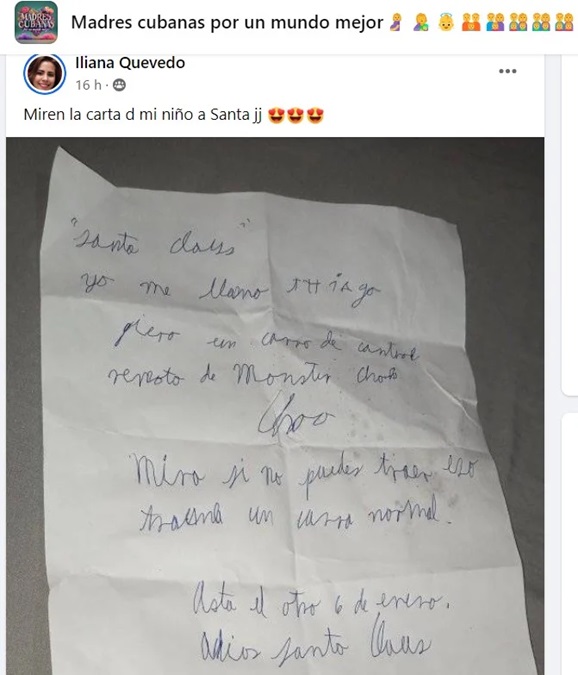 MADRES CUBANAS
Madres cubanas por un mundo mejor 🤰🤱👼👪👪👪👪👪
Iliana Quevedo
16 h ·
Miren la carta d mi niño a Santa jj 😍😍😍
"Santa claus"
yo me llamo THiAgo
piero un carro de control
remoto de Monster
Mira si no puedes traer eso
un carro normal.
Asta el otro 6 de enero.
Adios santo Claus